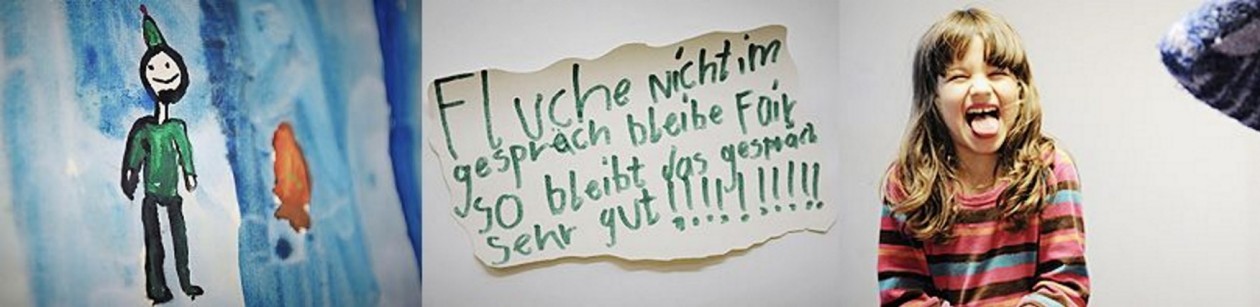 Fluche nicht im
gespräch bleibe Fair
so bleibt das gespräch
sehr gut !!!!!!!!!!